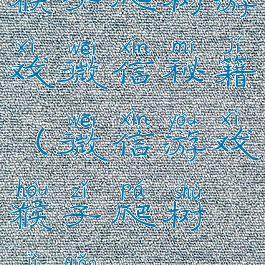 猴子爬树游
xì wēi xìn mì jí
戏微信秘籍
wēi xìn yóu xì
（微信游戏
hóu zǐ pá shù
猴子爬树